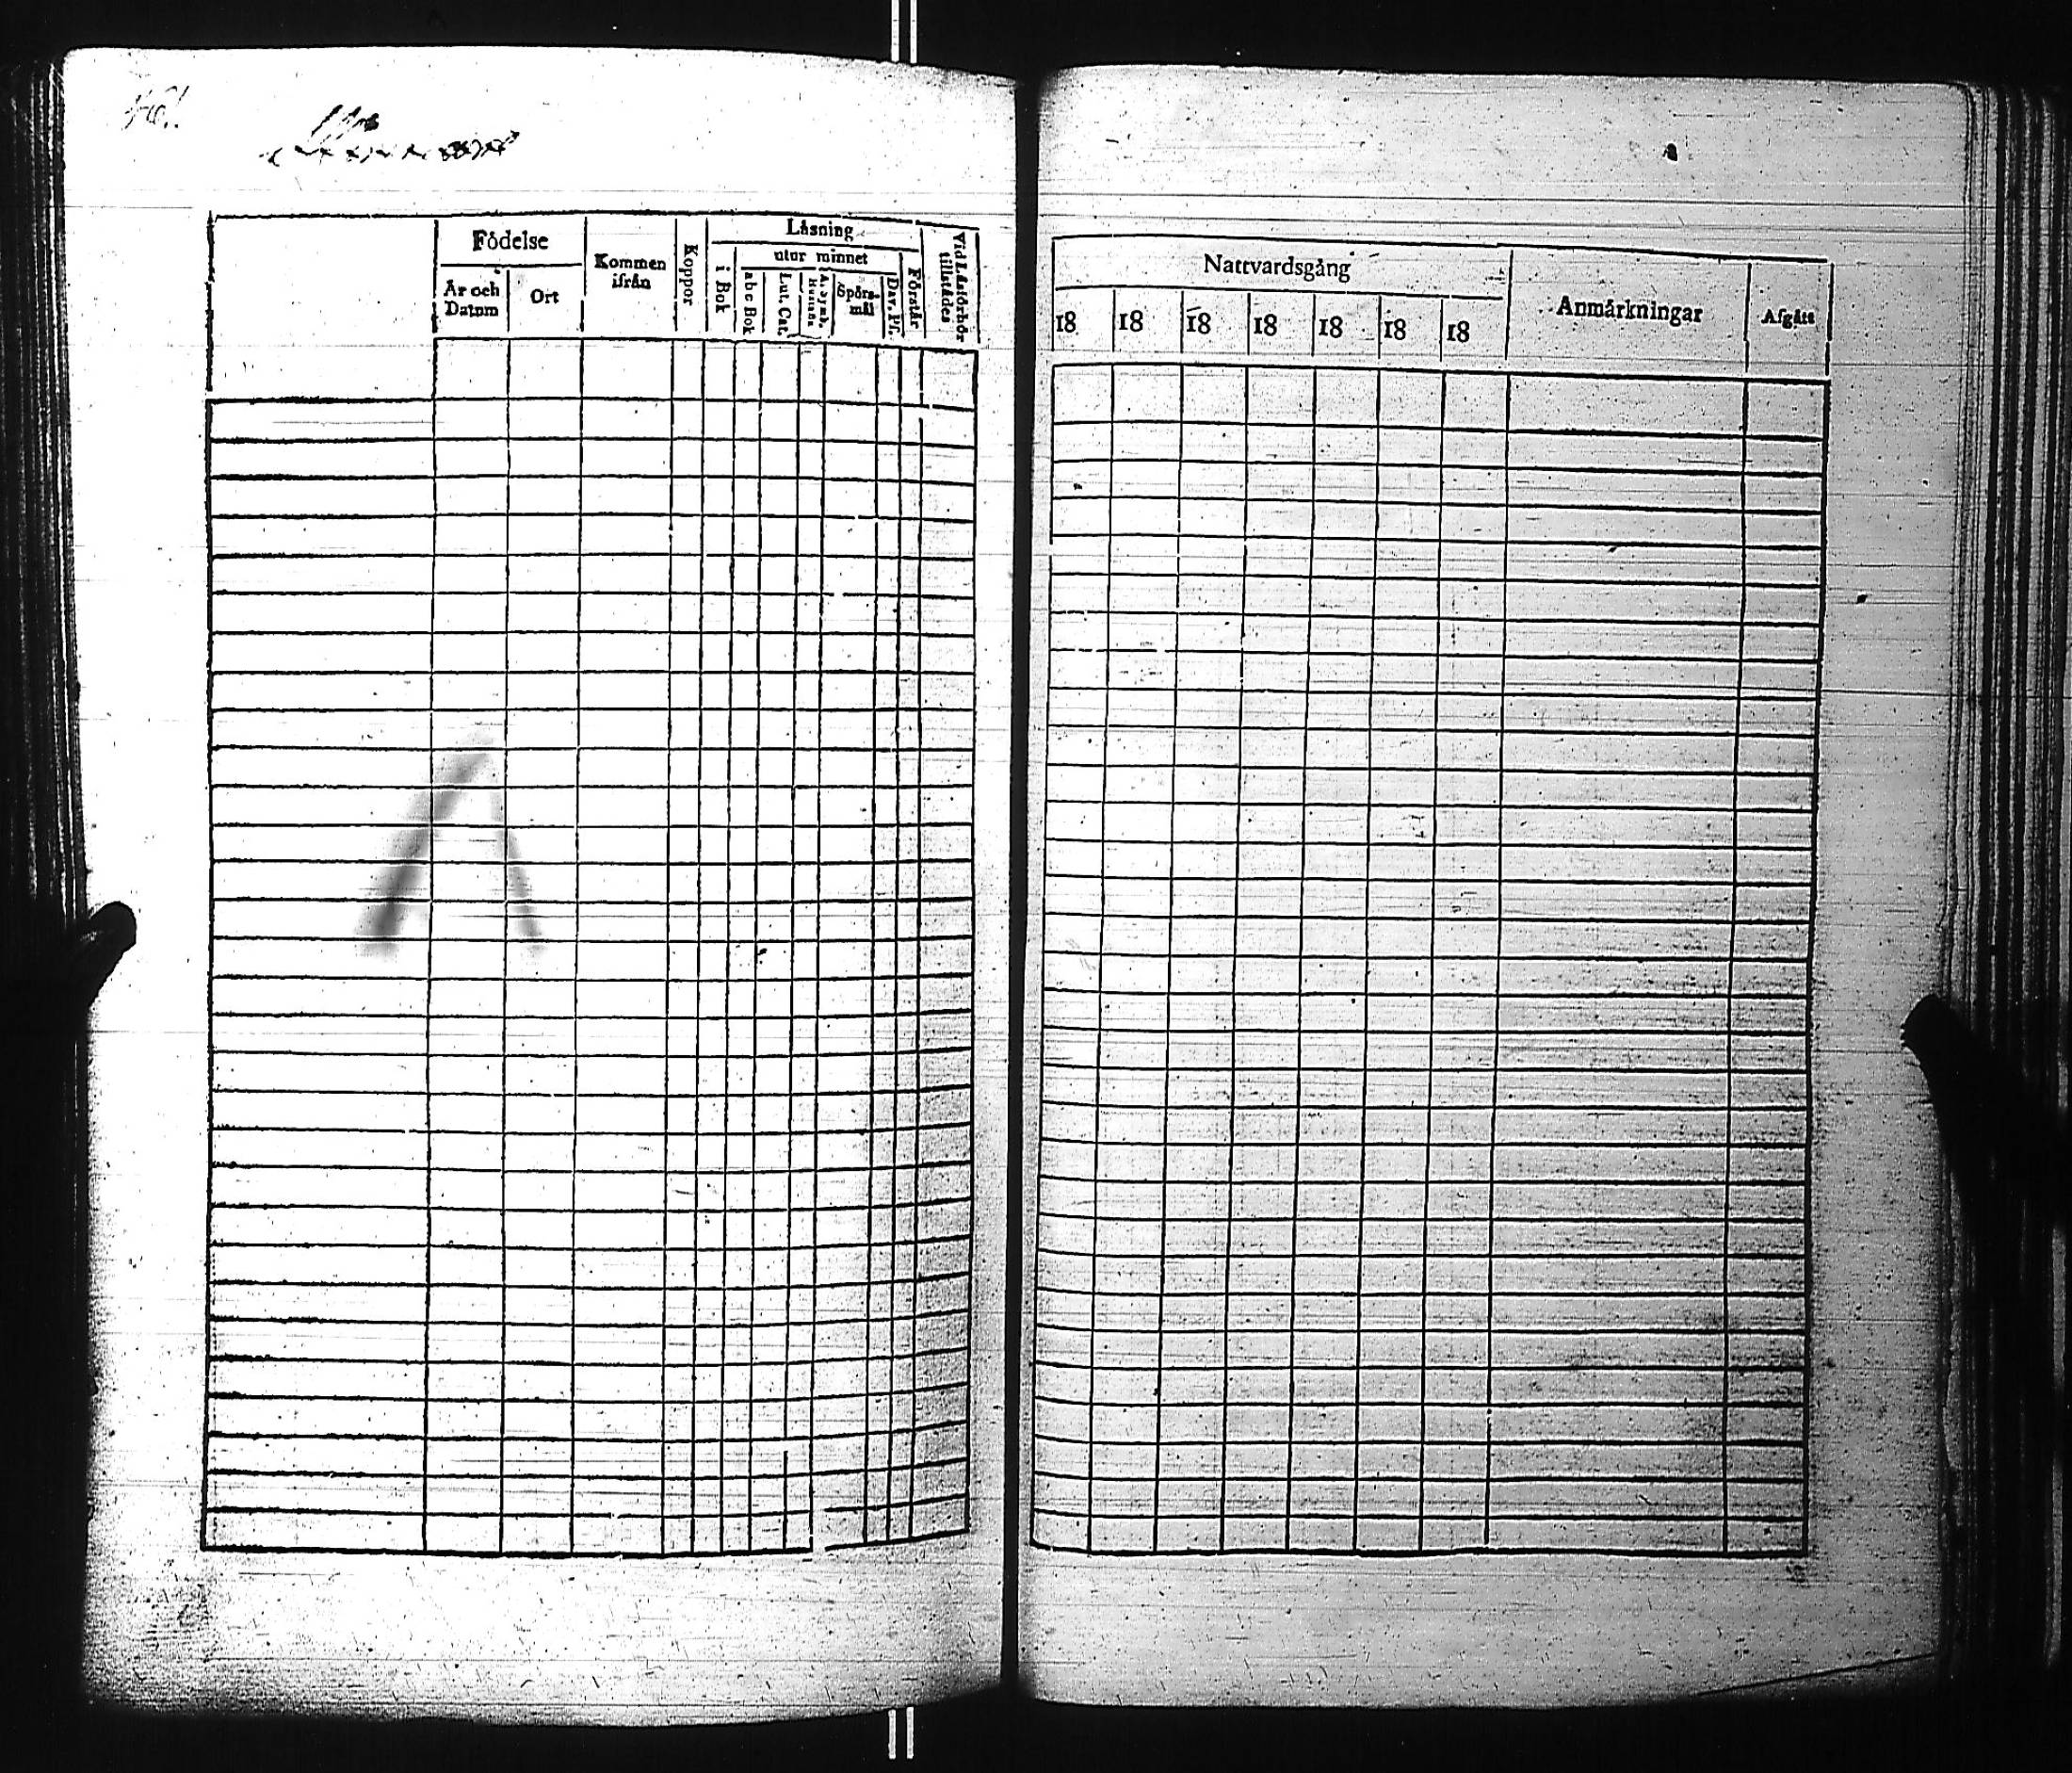 Födelse
År och Datum
Ort
Kommen ifrån
Koppor
Läsning
i Bok
utur minnet
abc Bok
Lut. Cat.
A. Symb.
Spörs-mål
Dav. Ps.
Förstår
Vid Läsförhör tillstådes
Nattvardsgång
18 18 18 18 18 18 18
Anmärkningar
Afgått